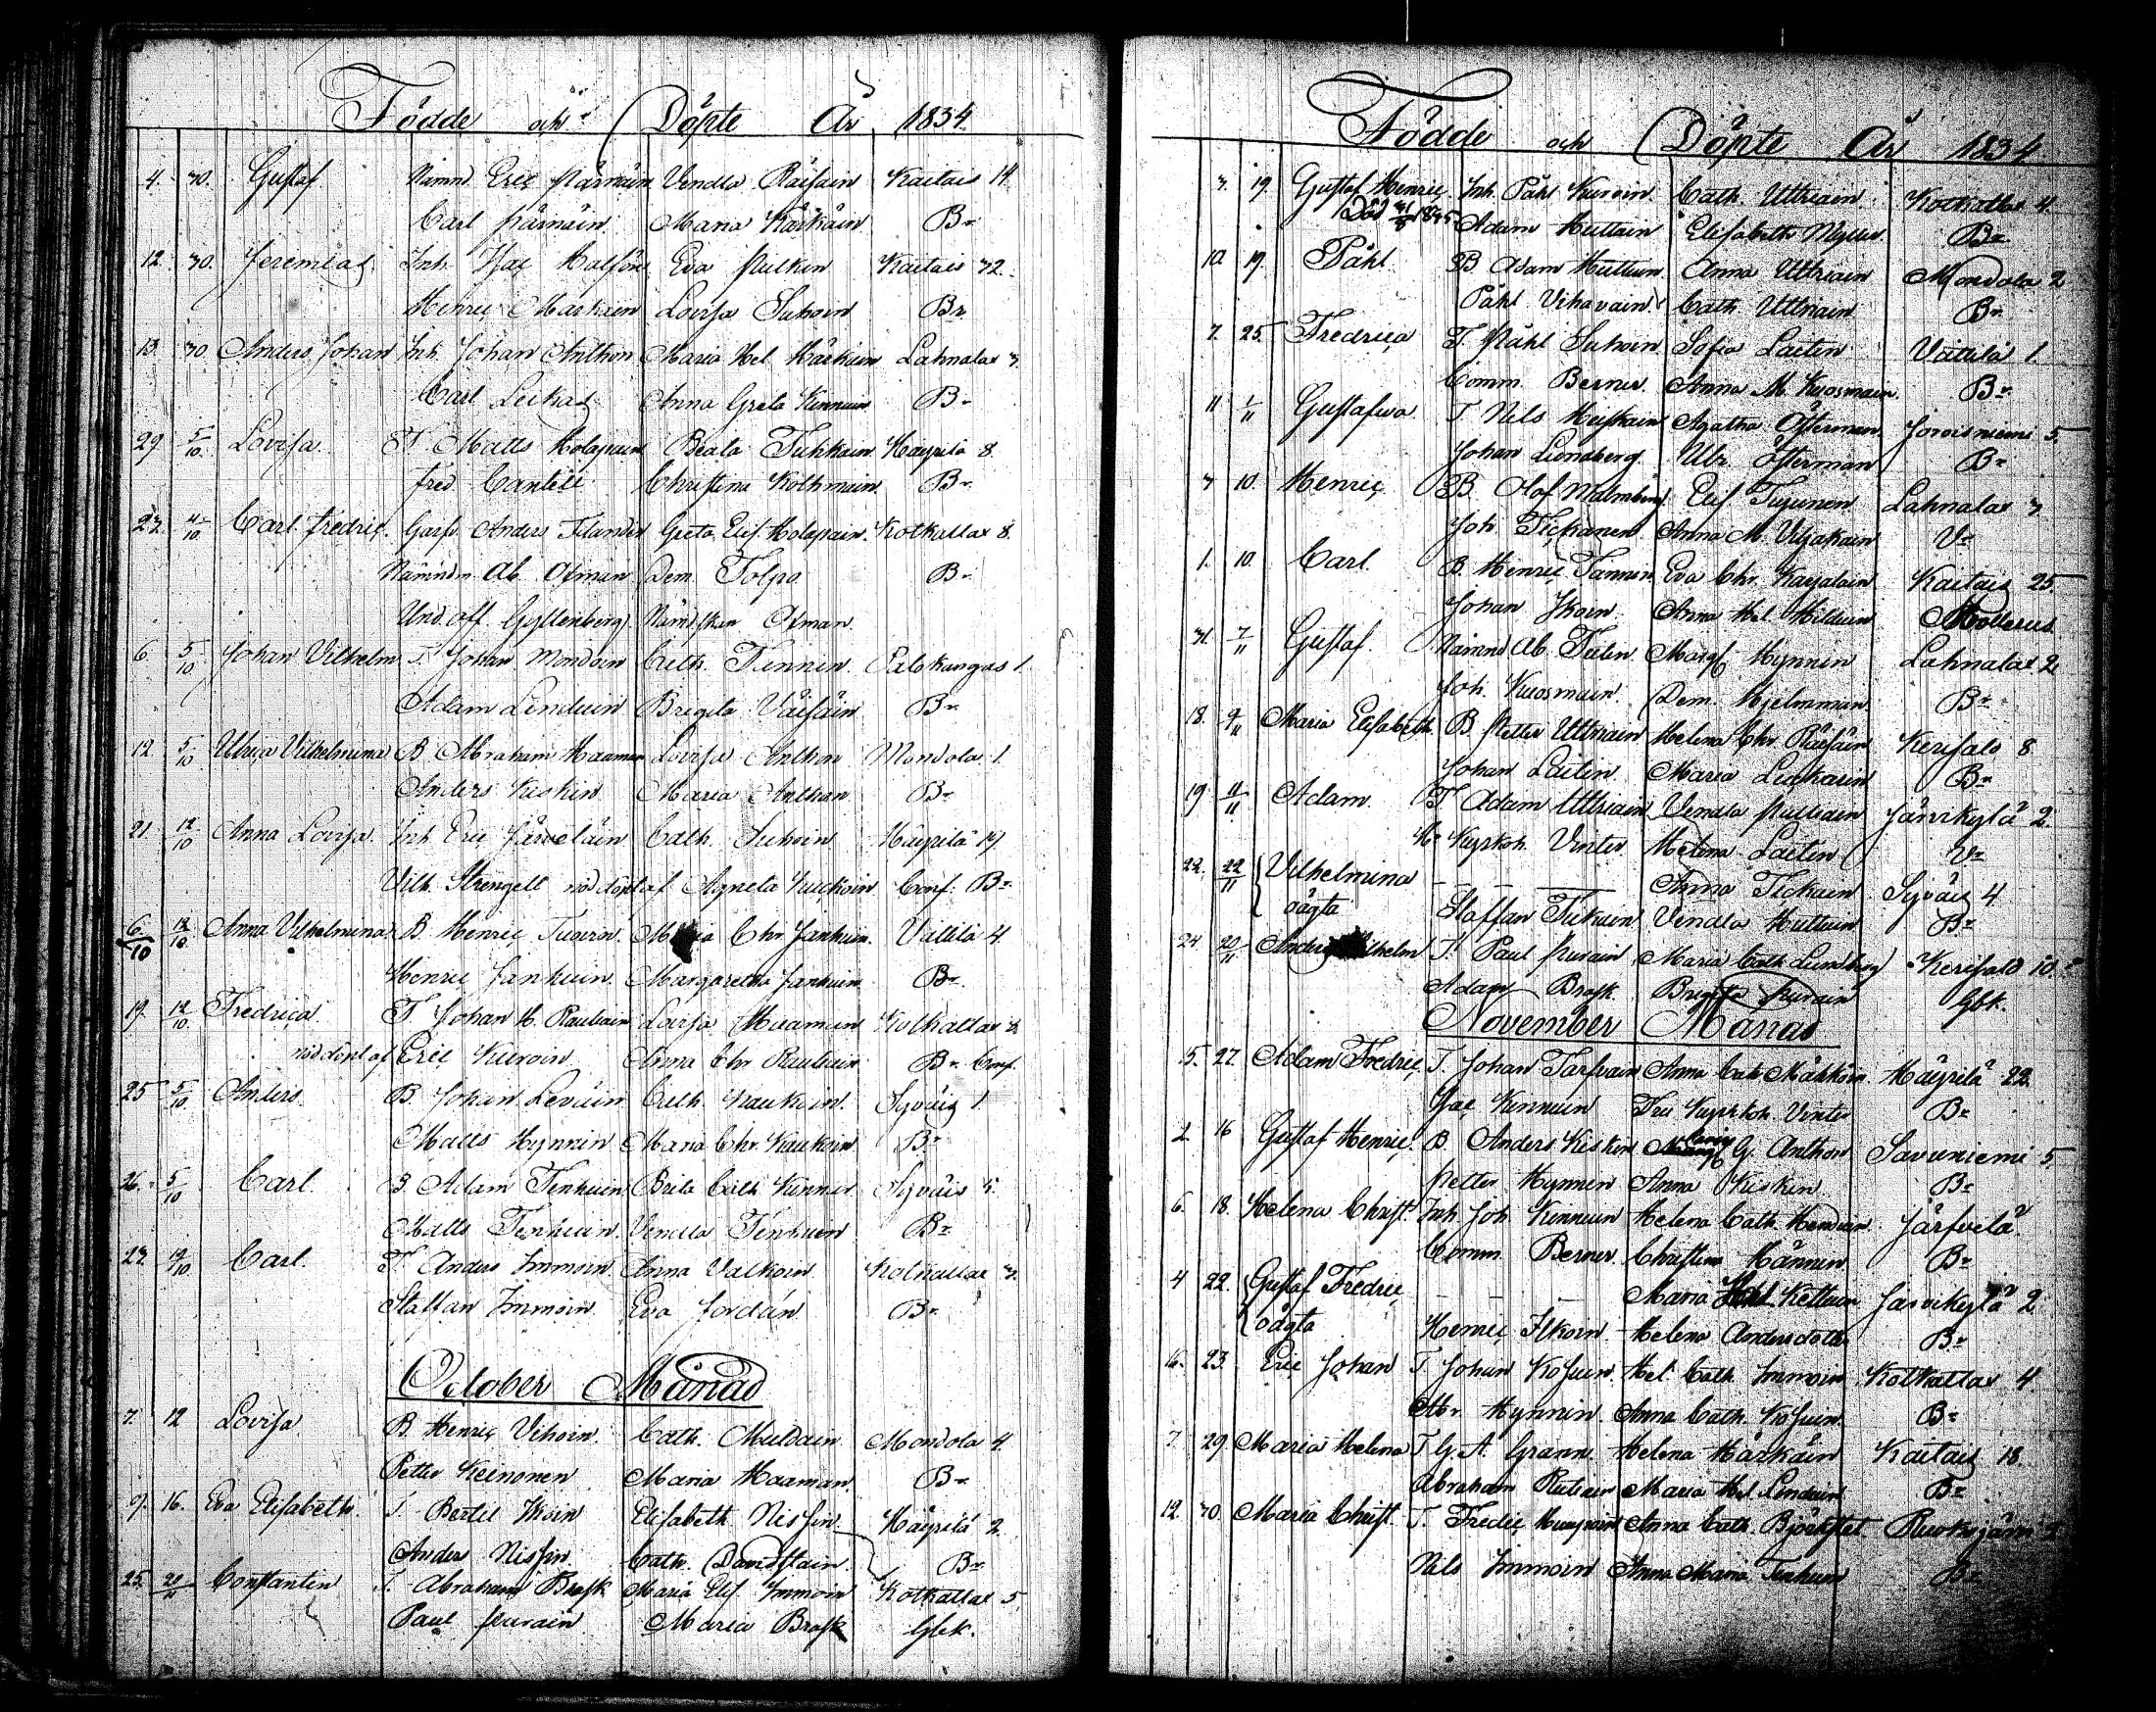 Födde och Döpte År 1834
4. 30. Gustaf Nämnd. Eric Pärnäin Vendla Räisäin Kaitais 14
Carl Pärnäin Maria Kärkäin Br
12. 30. Jeremias Inh. Isac Halfön Eva Pulkin Kaitais 32.
Henric Markain Lovisa Suhoin Br
13. 30 Anders Johan Inh. Johan Anthon Maria Hel. Härköin Lahnalax 3
Carl Leikas Anna Greta Kinnuin Br
29 5/10 Lovisa T. Matts Holapain Beata Tuhkain Häyrilä 8.
Fred. Cantell Christina Kolhmain Br
27. 4/10 Carl Fredric. Garfv. Anders Filander Greta Elis. Holapain. Kotkallax 8.
Nämndm. Ab. Ofman Dem. Tolpo Br
Und. off. Gyllenberg. Nämdskan Ofman.
6. 5/10 Johan Vilhelm T. Johan Mondoin Cath. Tinnin. Pelokangas 1.
Adam Linduin Bregita Väisäin Br
12 5/10 Ulrica Vilhelmina B Abraham Haaman Lovisa Anthon Mondola 1.
Anders Kiskin Maria Anthon Br
21. 12/10 Anna Lovisa. Inh Eric Järveläin Cath. Suhoin Häyrilä 19.
Vilh. Strengell nöddöpt af Agneta Kuckoin Conf. Br
6/10 12/10 Anna Vilhelmina B Henric Tuovin. Maria Chr. Janhuin. Vättilä 4.
Henric Janhuin. Margaretha Janhuin Br
19. 12/10. Fredrica. T Johan H. Rautiain Lovisa Muamuin Kotkallax 8.
nöddöpt af Eric Kuroin Anna Chr Rautiain Br Conf.
25 5/10 Anders. B. Johan Leväin Cath. Kaukoin. Syväis 1.
Matts Hynnin Maria Chr. Kaukoin Br
26. 5/10 Carl. B Adam Tenhuin Brita Cath. Kinnuin Syväis 5.
Matts Tenhuin. Vendla Tenhuin Br
23. 19/10 Carl. T. Anders Immoin. Anna Valkoin Kotkallax 3.
Staffan Immoin. Eva Jordän. Br
October Månad
7. 12 Lovisa. B. Henric Vihoin. Cath. Muldain Mondola 4.
Petter Keinonen Maria Haaman. Br
9. 16. Eva Elisabeth. T. Bertel Ikoin Elisabeth Nissin. Häyrilä 2.
Anders Nissin. Cath. Danstain. Br
25. Constantin T. Abraham Brask Maria Elis. Immoin Kotkallax 5
Paul Purain Maria Brask Gbk.
Födde och Döpte År 1834
3. 19 Gustaf Henric Inh. Påhl Kuroin. Cath. Uttriain. Kotkallax 4.
Död 1845 Adam Huttuin Elisabeth Myller. Br.
10. 19. Påhl B Adam Huttuin Anna Uttriain Mondola 2
Påhl Vihavain Cath. Uttriain. Br
7. 25. Fredrica T. Påhl Suhoin Sofia Laitin. Vättilä 1.
Comm. Berner. Anna M. Kuosmain. Br
11 1/11 Gustafva T Nils Heiskain Agatha Österman. Joroisniemi 5.
Johan Lundberg. Ulr. Österman Br
3 10. Henric B. Olof Malmberg Elis Tujunen Lahnalax 3
Joh. Tickanen. Anna M. Viljakain Vr
1. 10. Carl. B. Henric Tanninin Eva Chr. Karjalain Kaitais 25.
Johan Ikoin Anna Hel. Hilduin Mollerus
31. 7/11 Gustaf. Nämnd Ab. Tulin. Marg. Hynnin Lahnalax 2
Joh. Kuosmain. Dem. Hjelmman. Br
18. 9/11 Maria Elisabeth. B. Petter Uttriain Helena Chr Räisäin Kerisalo 8
Johan Laitin. Maria Liukain Br
19 11/11 Adam. T Adam Uttriain Vendla Pulliain Järvikylä 2.
Hr Kyrkoh. Vinter Helena Laitin Vr
22. 22/11 Vilhelmina — — — Anna Tickain Syväis 4
oägta Staffan Tickain Vendla Huttuin Br
24 20/11 Anders Vilhelm T. Paul Purain Maria Cath. Lundberg Kerisalo 10.
Adam Brask. Bregita Purain Gbk.
November Månad
5. 27. Adam Fredric T. Johan Tarfvain Anna Cath Mähköin. Häyrilä 22.
Isac Kinnuin Fru Kyrkoh. Vinter Br
2. 16 Gustaf Henric. B. Anders Kiskin G. Anthon Savuniemi 5.
Petter Hynnen Anna Kiskin Br
6. 18. Helena Christ. Inh. Joh. Kinnuin Helena Cath. Hendrin. Järfvelä.
Comm. Berner Christina Hännin Br
4 22. Gustaf Fredric — — — Maria Kettuin Järvikylä 2
oägta Henric Ikoin Helena Andersdotter Br
16. 23. Eric Johan T Johan Kosuin. Hel. Cath. Immoin Kotkallax 4.
Abr. Hynnin. Anna Cath. Kosuin. Br
7. 29. Maria Helena T. G. A. Grann. Helena Härkäin Kaitais 18.
Abraham Rutiain Maria Hel. Linduin Br
12. 30. Maria Christ. T. Fredric Anna Cath. Björkstet Ruokojärvi 2
Nils Immoin Anna Maria Tenhuin Br